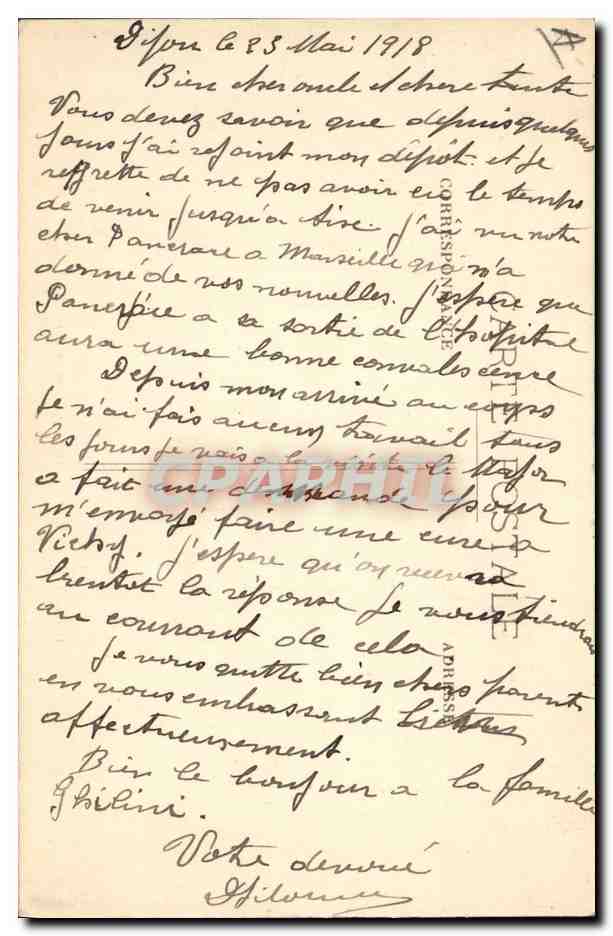 Dijon le 23 Mai 1918
Bien cher oncle et chere tante
Vous devez savoir que depuis quelques
jours j'ai rejoint mon dépôt. et je
regrette de ne pas avoir eu le temps
de venir jusqu'a Aix. j'ai vu notre
cher Pancrace a Marseille qui m'a
donné de vos nouvelles. j'espère que
Pancrace a sa sortie de l'hopital
aura une bonne convalescence
Depuis mon arrivé au corps
je n'ai fais aucun travail tous
les jours je vais a la visite le Major
a fait une demande pour
m'envoyé faire une cure a
Vichy. j'espere qu'on recevra
bientot la réponse je vous tiendrai
au courrant de cela
je vous quitte bien chers parents
en vous embrassant
affectueusement.
Bien le bonjour a la famille
Ghilini.
Votre devoué
CARTE POSTALE
CORRESPONDANCE
ADRESSE
CPAPHIL